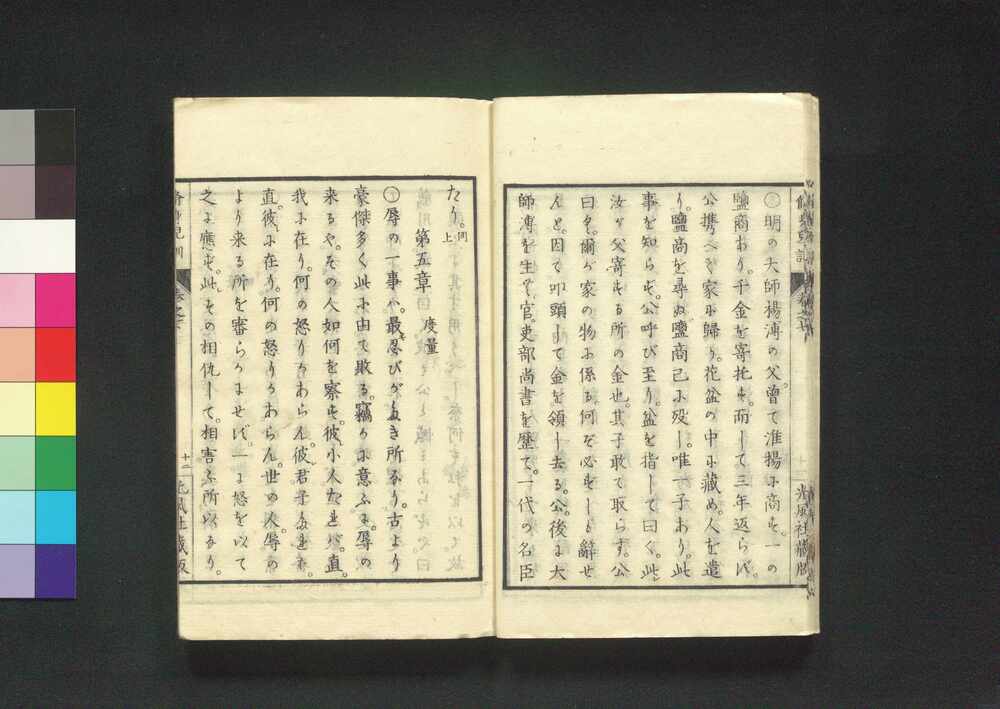 明の大師楊溥の父。曾て淮揚に商す。一の
鹽商あり。千金を寄托す。而して三年返らず。
公携へて家に歸り。花盆の中に藏め。人を遣
り。鹽商を尋ぬ。鹽商已に歿し。唯一子あり。此
事を知らず。公呼び至り。盆を指して曰く。此
汝が父寄する所の金也。其子敢て取らず。公
曰く。爾が家の物に係る。何ぞ必ずしも辭せ
んと。因て叩頭して金を領し去る。公。後に大
師溥を生で。官吏部尚書を歴て。一代の名臣
たり。同上
第五章 度量
○辱の一事は。最忍びがたき所なり。古より
豪傑多く此に由て敗る。竊かに意ふに。辱の
来るや。その人如何を察す。彼。小人なれば。直。
我に在り。何の怒りかあらん。彼。君子なれば。
直。彼に在り。何の怒りかあらん。世の人。辱の
より来る所を審らかにせず。一に怒を以て
之に應ず。此その相仇して。相害ふ所以なり。
十二
光風社藏版
光風社藏版